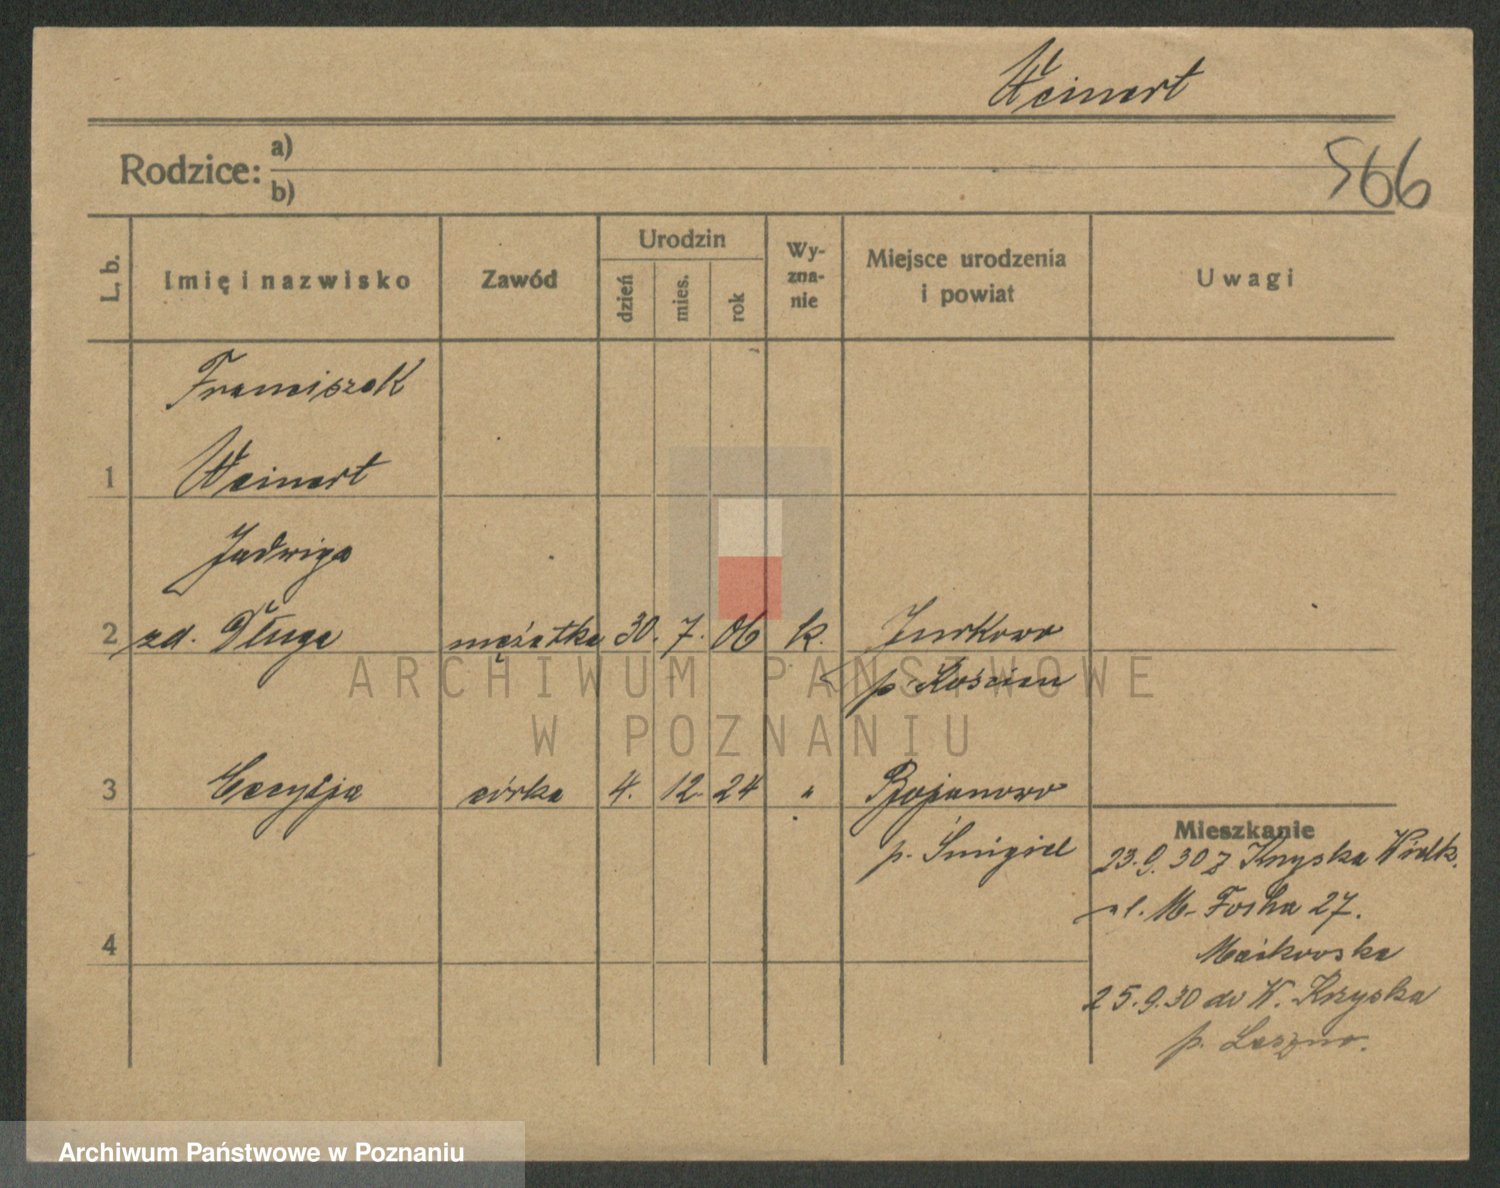 Weinert
566
Rodzice: a)
b)
L. b.
Imię i nazwisko
Zawód
Urodzin
dzień
mies.
rok
Wy-
zna-
nie
Miejsce urodzenia
i powiat
Uwagi
Franciszek
1 Weinert
Jadwiga
2 zd. Długa mężatka 30. 7. 06 k. Jurkowo
p. Kościan
3 Cecylja córka 4. 12. 24 " Bojanowo
p. Śmigiel
4
Mieszkanie
23.9.30 z Wielk.
ul. M. Focha 27.
25.9.30 do W.
p. Leszno.
ARCHIWUM PAŃSTWOWE
W POZNANIU
Archiwum Państwowe w Poznaniu